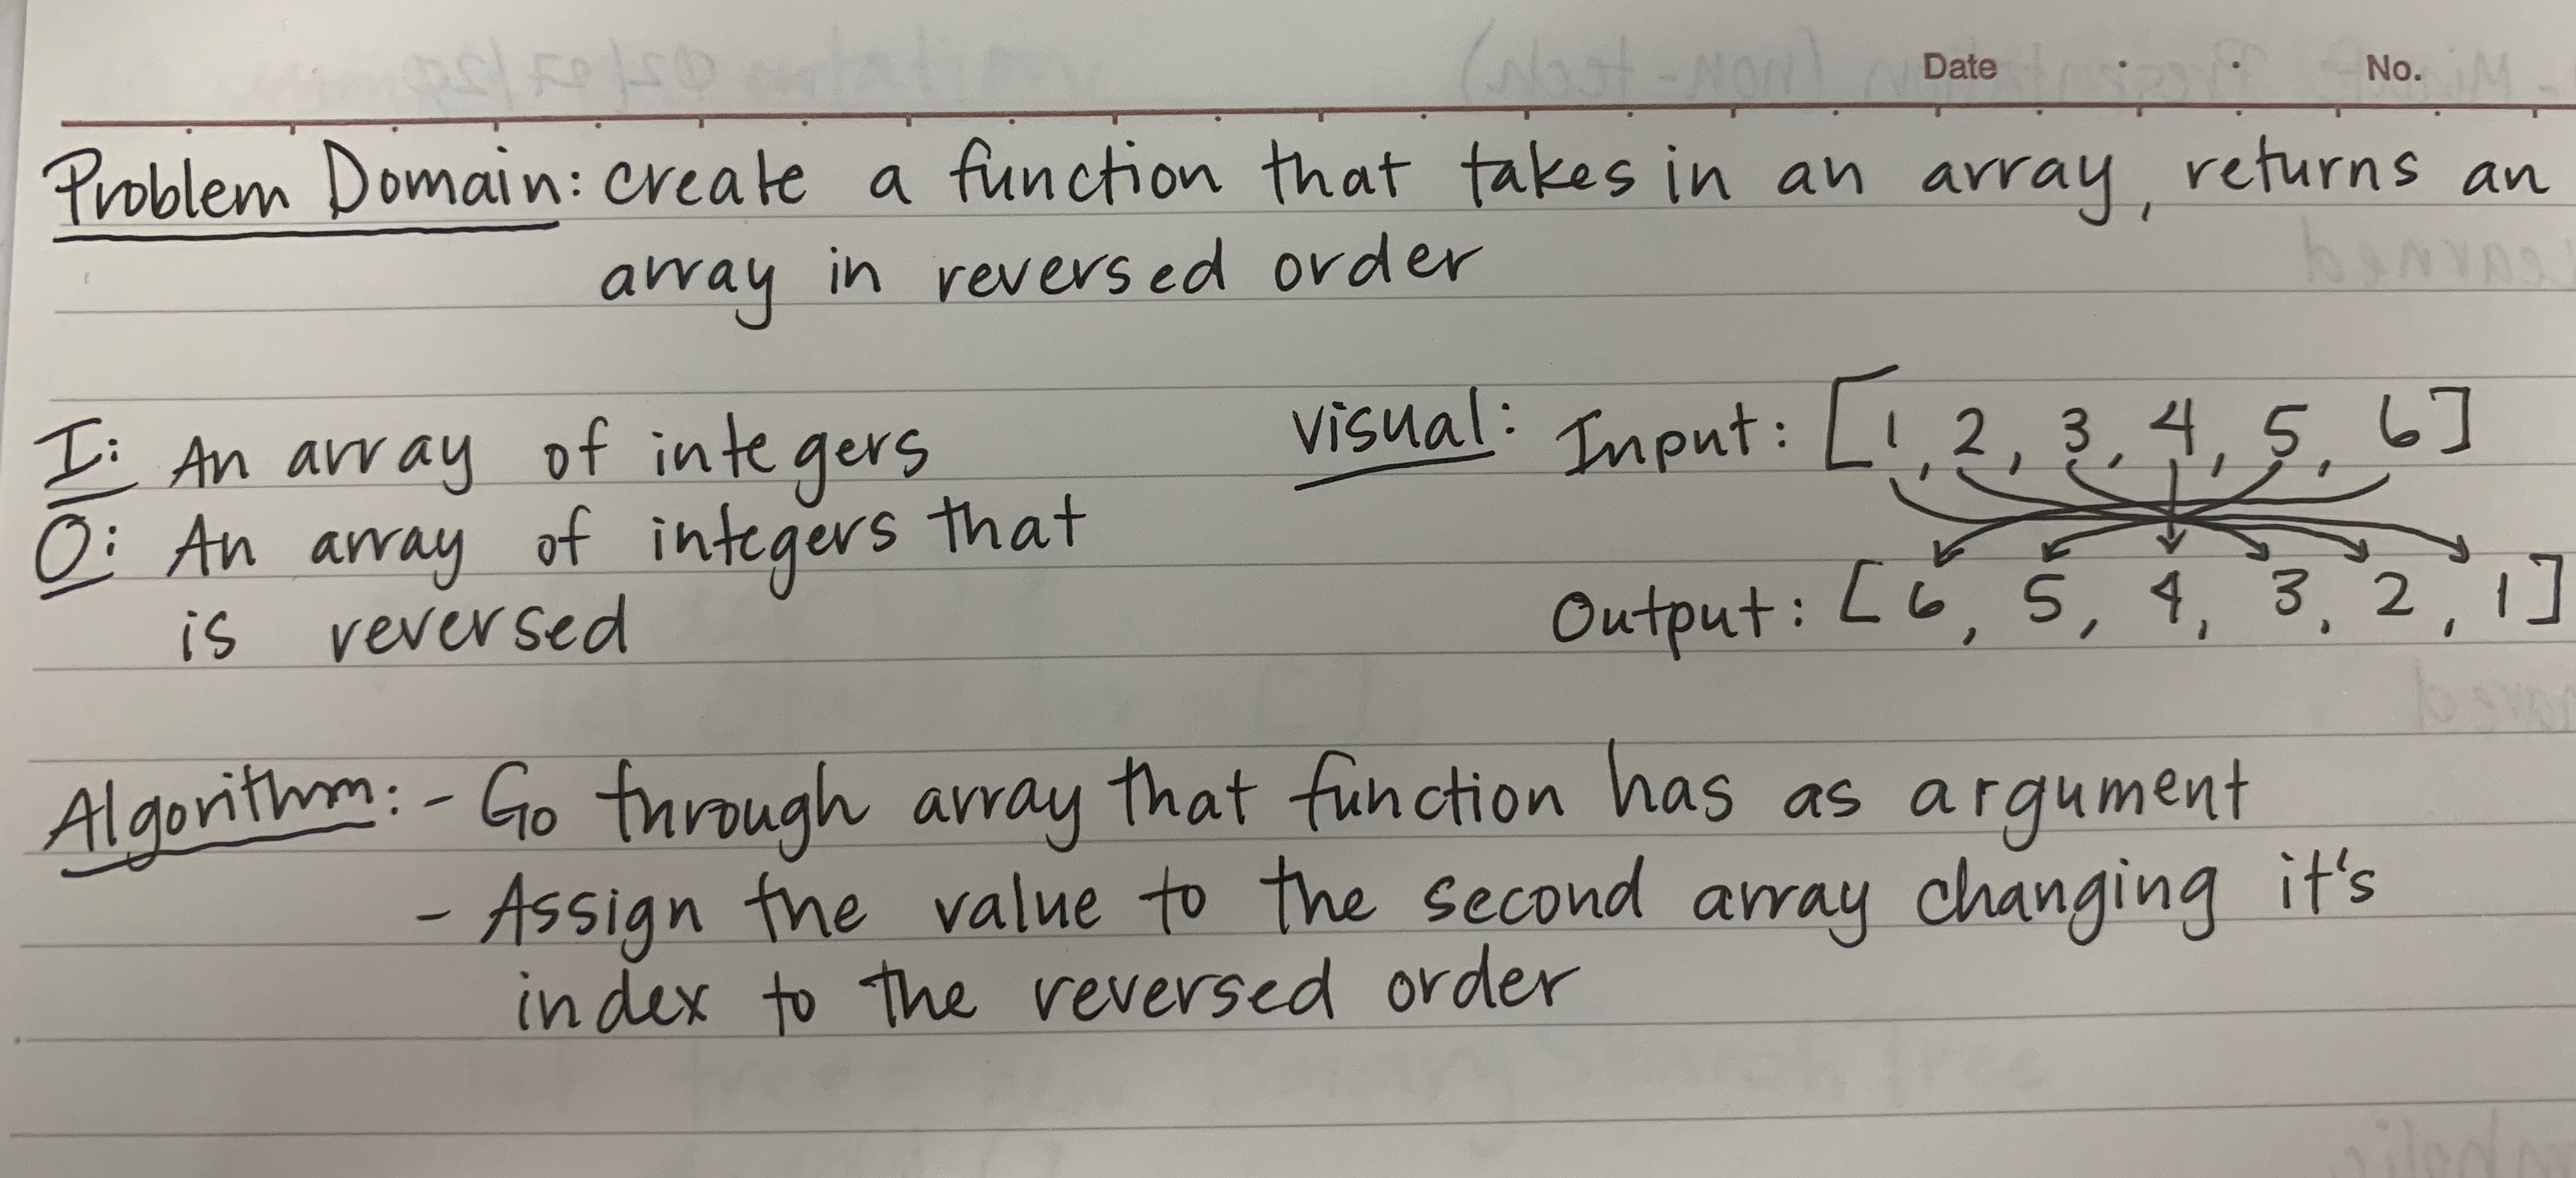 Date No.
Problem Domain: create a function that takes in an array, returns an
array in reversed order
I: An array of integers
O: An array of integers that
is reversed
Visual: Input: [1, 2, 3, 4, 5, 6]
Output: [6, 5, 4, 3, 2, 1]
Algorithm: - Go through array that function has as argument
- Assign the value to the second array changing it's
index to the reversed order